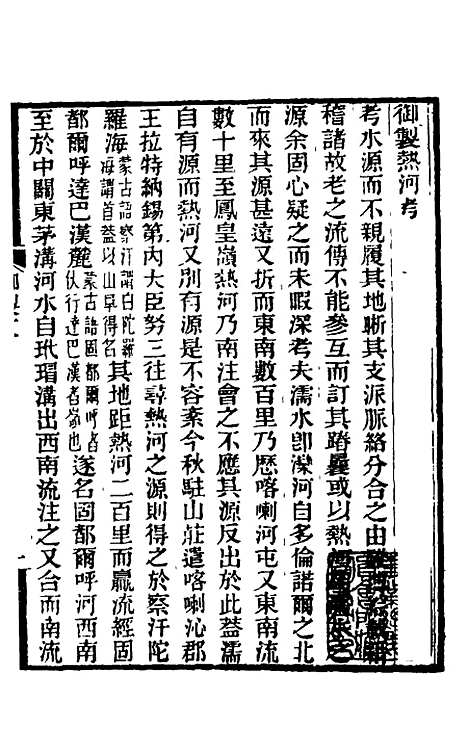 御製熱河考
考水源而不親履其地晰其支派脈絡分合之由
稽諸故老之流傳不能參互而訂其踳曩或以熱
源余固心疑之而未暇深考夫濡水卽灤河自多倫諾爾之北
而來其源甚遠又折而東南數百里乃歷喀喇河屯又東南流
數十里至鳳皇嶺熱河乃南注會之不應其源反出於此蓋濡
自有源而熱河又別有源是不容紊今秋駐山莊遣喀喇沁郡
王拉特納錫第內大臣努三往尋熱河之源則得之於察汗陀
羅海蒙古語察汗謂白陀羅海謂首蓋以山阜得名其地距熱河二百里而贏流經固
都爾呼達巴漢麓蒙古語固都爾呼者伏行達巴漢者嶺也遂名固都爾呼河西南
至於中關東茅溝河水自玳瑁溝出西南流注之又合而南流